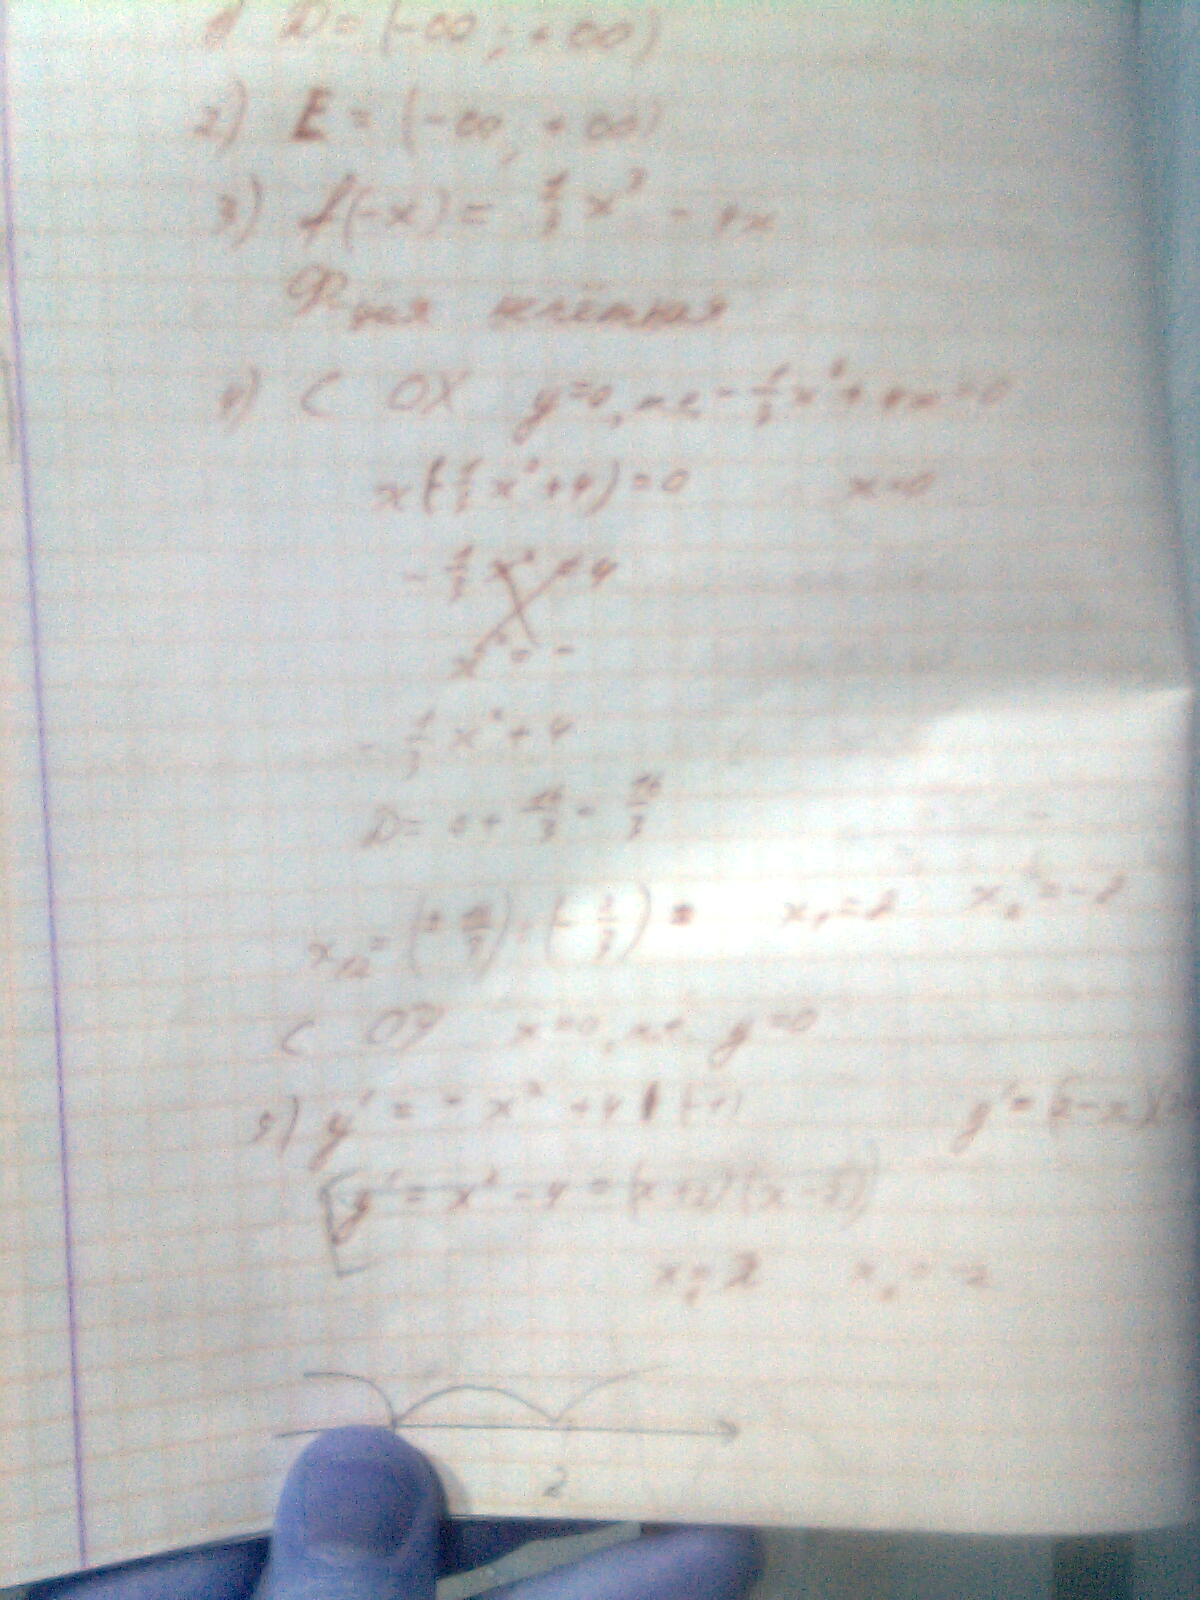 1) D = (-∞; +∞)
2) E = (-∞; +∞)
3) f(-x) = 1/3 x³ - 4x
Ф-ция нечётная
4) С OX y=0, т.е. -1/3 x³ + 4x = 0
x(-1/3 x² + 4) = 0 x=0
- 1/3 x² + 4
x² = -
- 1/3 x² + 4
D = 16/3 = 16/3
x₁₂ = (± 16/3) : (- 2/3) = x₁ = 8 x₂ = -8
С OY x=0, т.е. y=0
5) y' = - x² + 4 | (-1) y' = (2-x)(
y' = x² - 4 = (x+2)(x-2)
x₁ = 2 x₂ = -2
2